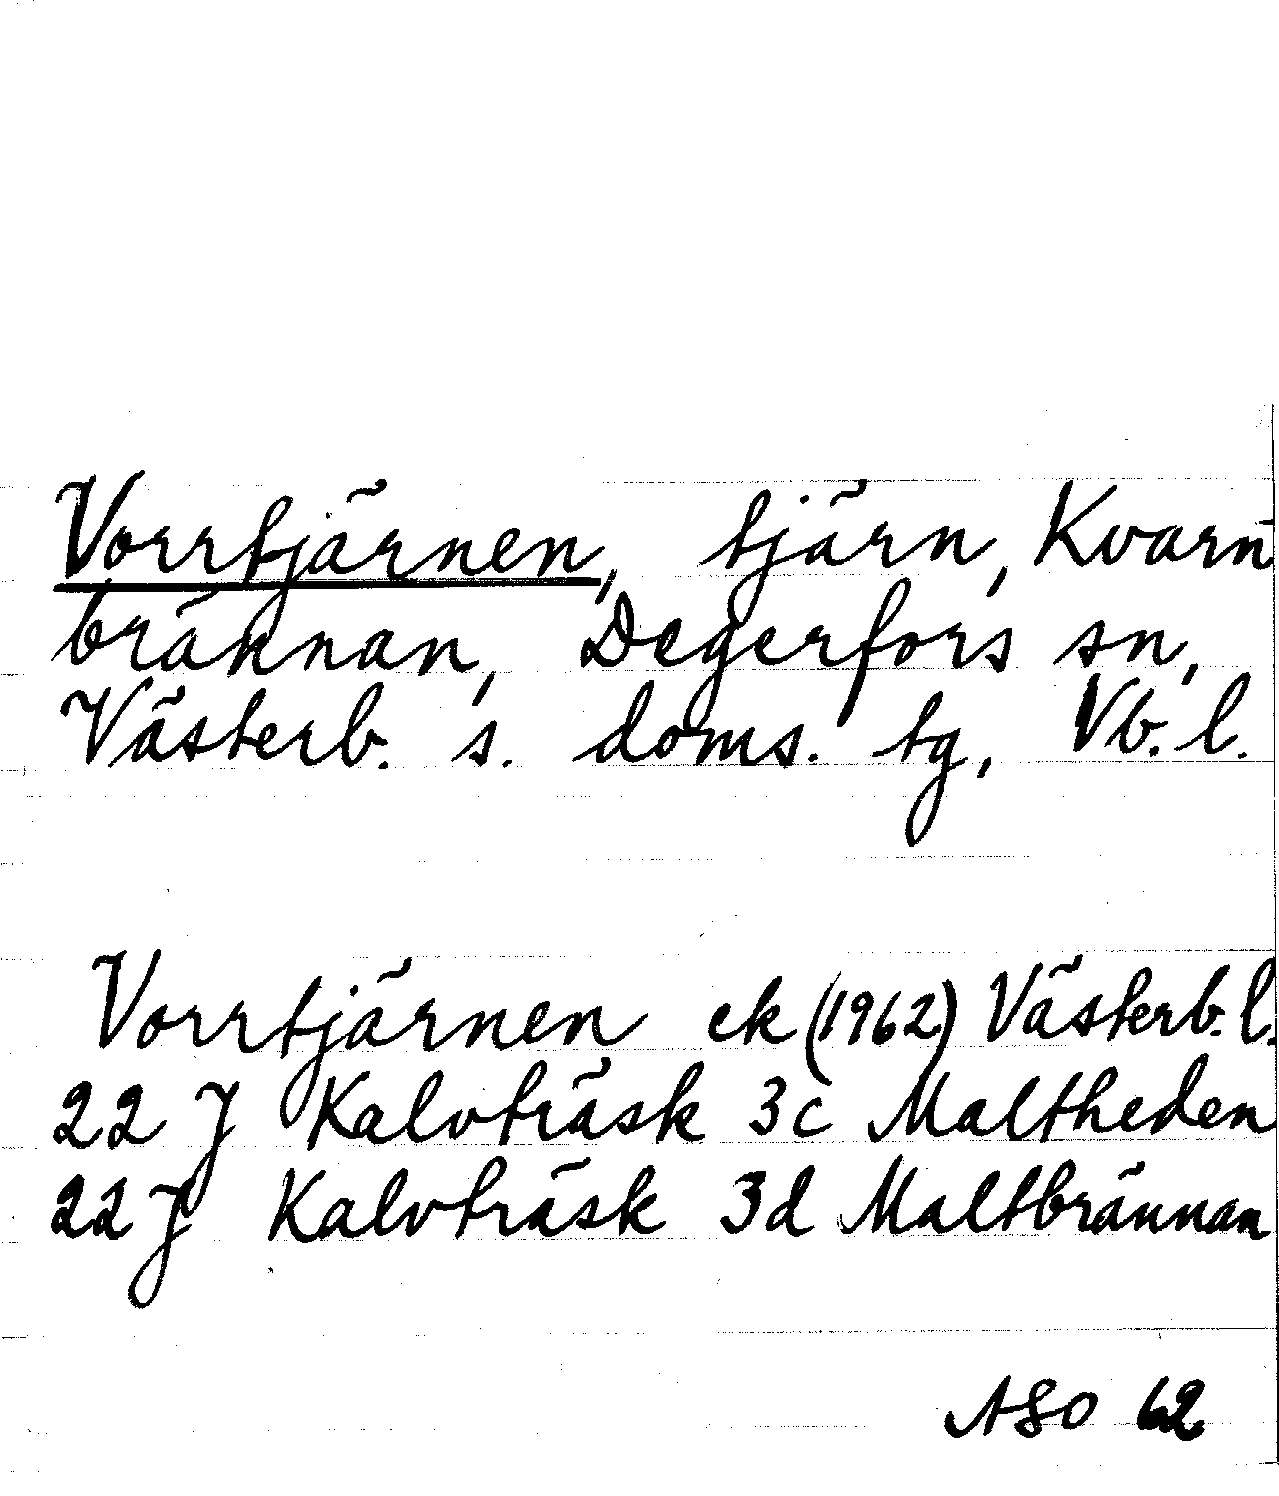 Vorrtjärnen, tjärn, Kvarn-
brännan, Degerfors sn,
Västerb. s. doms. tg, Vb. l.
Vorrtjärnen ek (1962) Västerb. l.
22 J Kalvträsk 3c Maltheden
22 J Kalvträsk 3d Maltbrännan
ASO 62